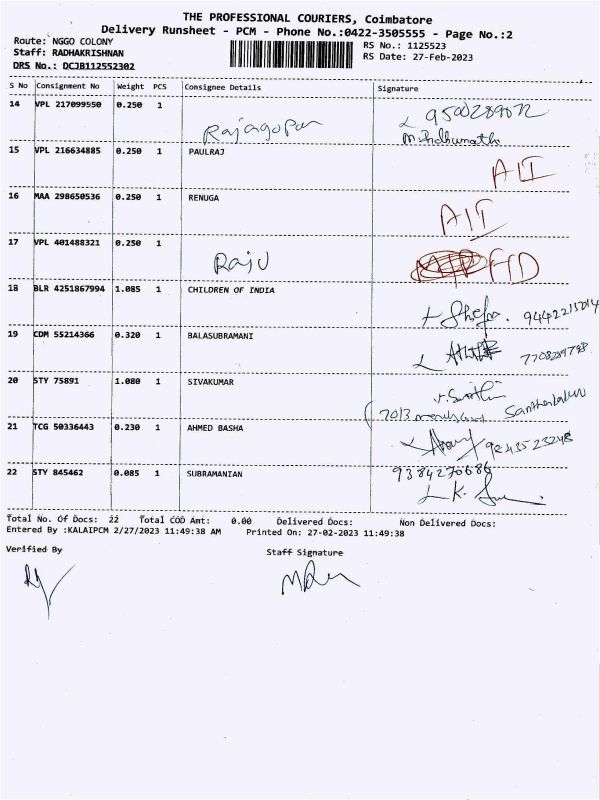 THE PROFESSIONAL COURIERS, Coimbatore
Delivery Runsheet - PCM - Phone No.:0422-3505555 - Page No.:2
Route: NGGO COLONY
RS No.: 1125523
Staff: RADHAKRISHNAN
RS Date: 27-Feb-2023
DRS No.: DCJB112552302
S No Consignment No Weight PCS Consignee Details Signature
14 VPL 217099550 0.250 1 Rajagopan
15 VPL 216634885 0.250 1 PAULRAJ AIT
16 MAA 298650536 0.250 1 RENUGA AIT
17 VPL 401488321 0.250 1 Raju
18 BLR 4251867994 1.085 1 CHILDREN OF INDIA
19 COM 55214366 0.320 1 BALASUBRAMANI
20 STY 75891 1.080 1 SIVAKUMAR
21 TCG 50336443 0.230 1 AHMED BASHA
22 STY 845462 0.085 1 SUBRAMANIAN 9384270686
Total No. Of Docs: 22 Total COD Amt: 0.00 Delivered Docs: Non Delivered Docs:
Entered By :KALAIPCM 2/27/2023 11:49:38 AM Printed On: 27-02-2023 11:49:38
Verified By Staff Signature